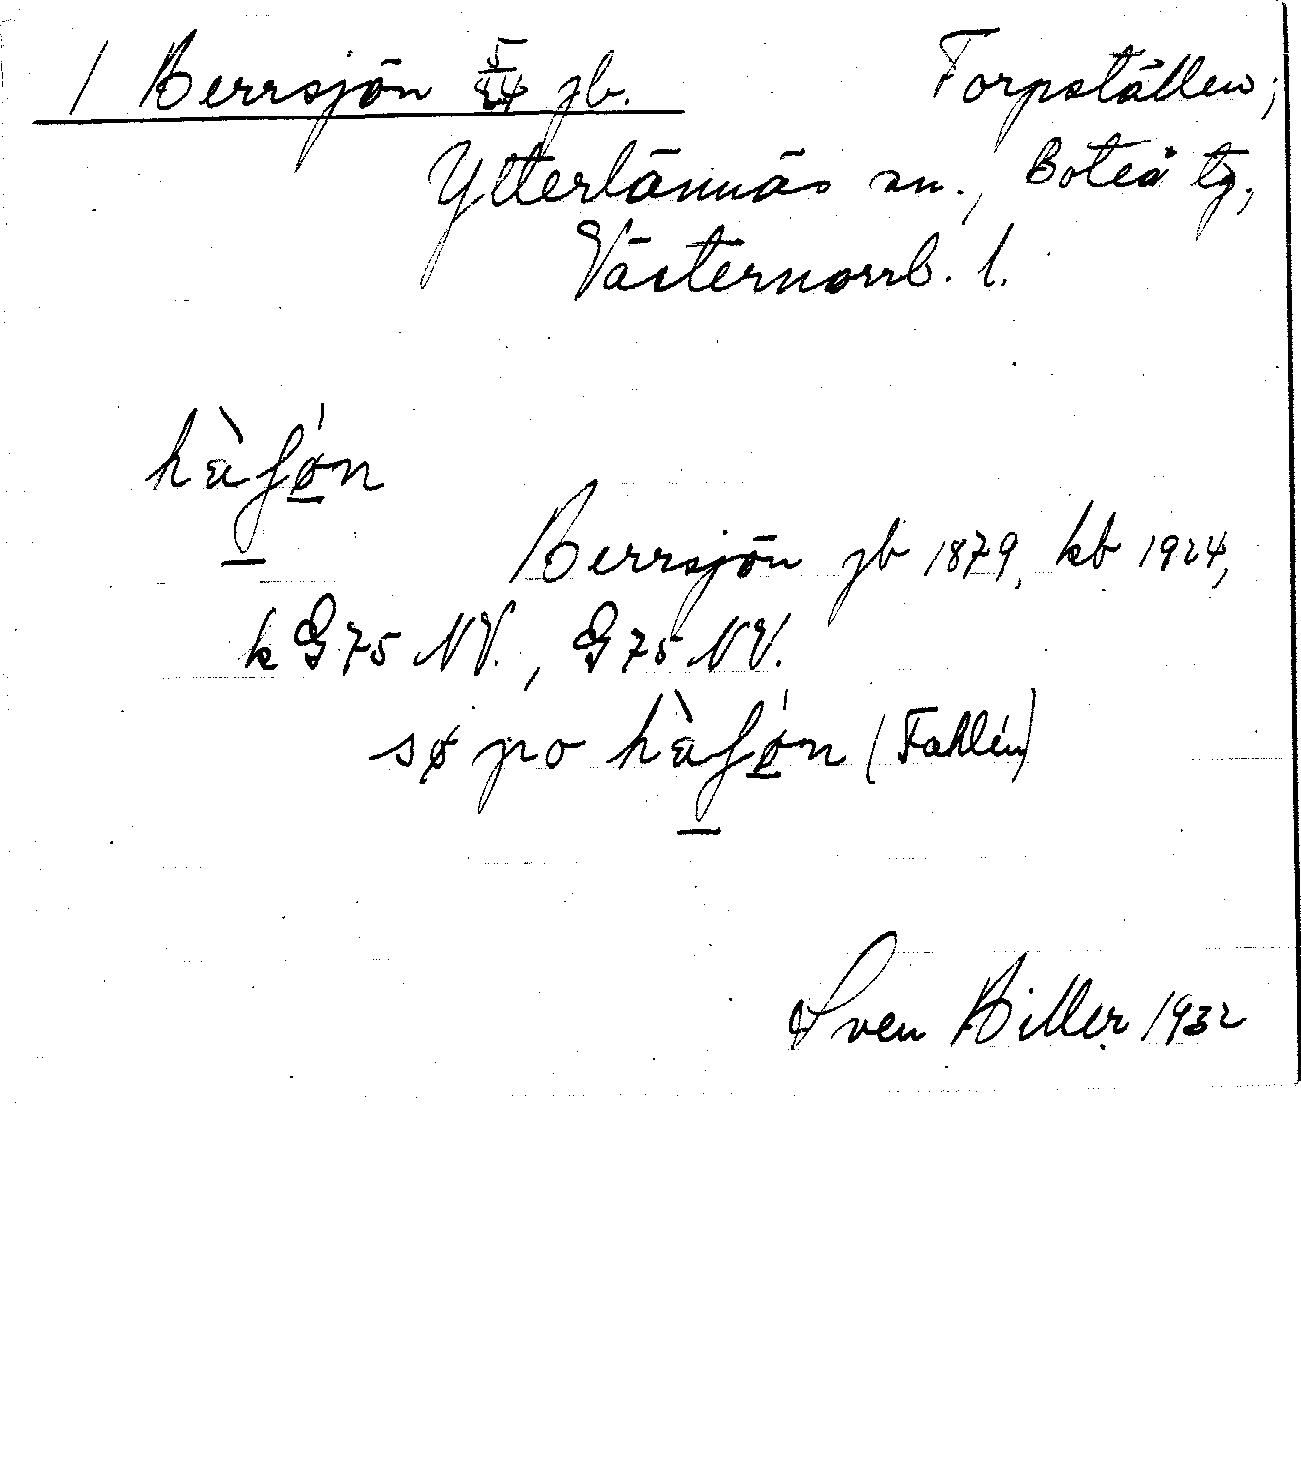 1 Berrsjön 5/24 jb. Torpställen;
Ytterlännäs sn., Boteå tg,
Västernorrl. l.
hàʃø̱n
Berrsjön jb 1879, kb 1924,
k G 75 NV., G 75 NV.
sø po hàʃø̱n (Fahlén)
Sven Biller 1932